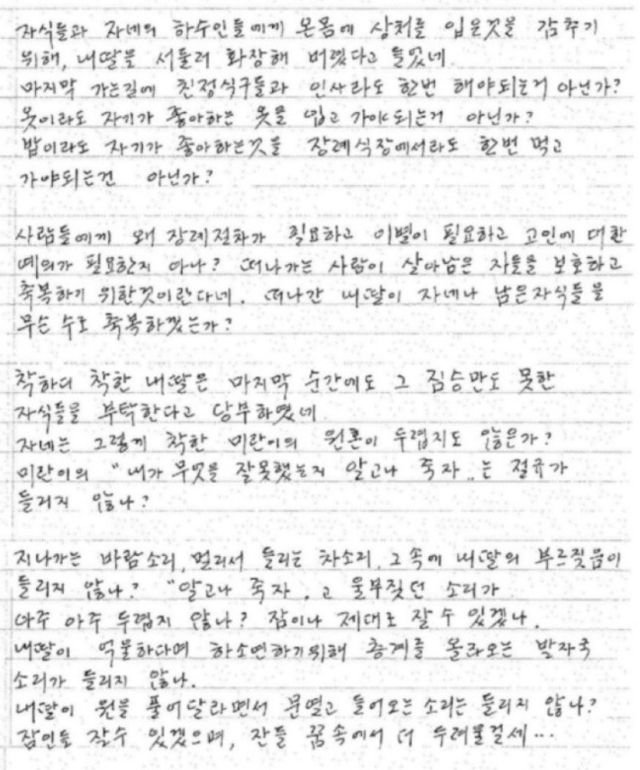 자식들과 자네의 하수인들에게 온몸에 상처를 입은것을 감추기
위해, 내딸을 서둘러 화장해 버렸다고 들었네
마지막 가는길에 친정식구들과 인사라도 한번 해야되는거 아닌가?
옷이라도 자기가 좋아하는 옷을 입고 가야되는거 아닌가?
밥이라도 자기가 좋아하는것을 장례식장에서라도 한번 먹고
가야되는건 아닌가?
사람들에게 왜 장례절차가 필요하고 이별이 필요하고 고인에 대한
예의가 필요한지 아나? 떠나가는 사람이 살아남은 자들을 보호하고
축복하기 위한것이란다네. 떠나간 내딸이 자네나 남은자식들을
무슨 수로 축복하겠는가?
착하디 착한 내딸은 마지막 순간에도 그 짐승만도 못한
자식들을 부탁한다고 당부하였네
자네는 그렇게 착한 미란이의 원혼이 두렵지도 않은가?
미란이의 "내가 무엇을 잘못했는지 알고나 죽자"는 절규가
들리지 않나?
지나가는 바람소리, 멀리서 들리는 차소리, 그속에 내딸의 부르짖음이
들리지 않나? "알고나 죽자"고 울부짖던 소리가
아주 아주 두렵지 않나? 잠이나 제대로 잘 수 있겠나.
내딸이 억울하다며 하소연하기위해 층계를 올라오는 발자국
소리가 들리지 않나.
내딸이 원을 풀어달라면서 문열고 들어오는 소리는 들리지 않나?
잠인들 잘수 있겠으며, 잔들 꿈속에서 더 두려울걸세...